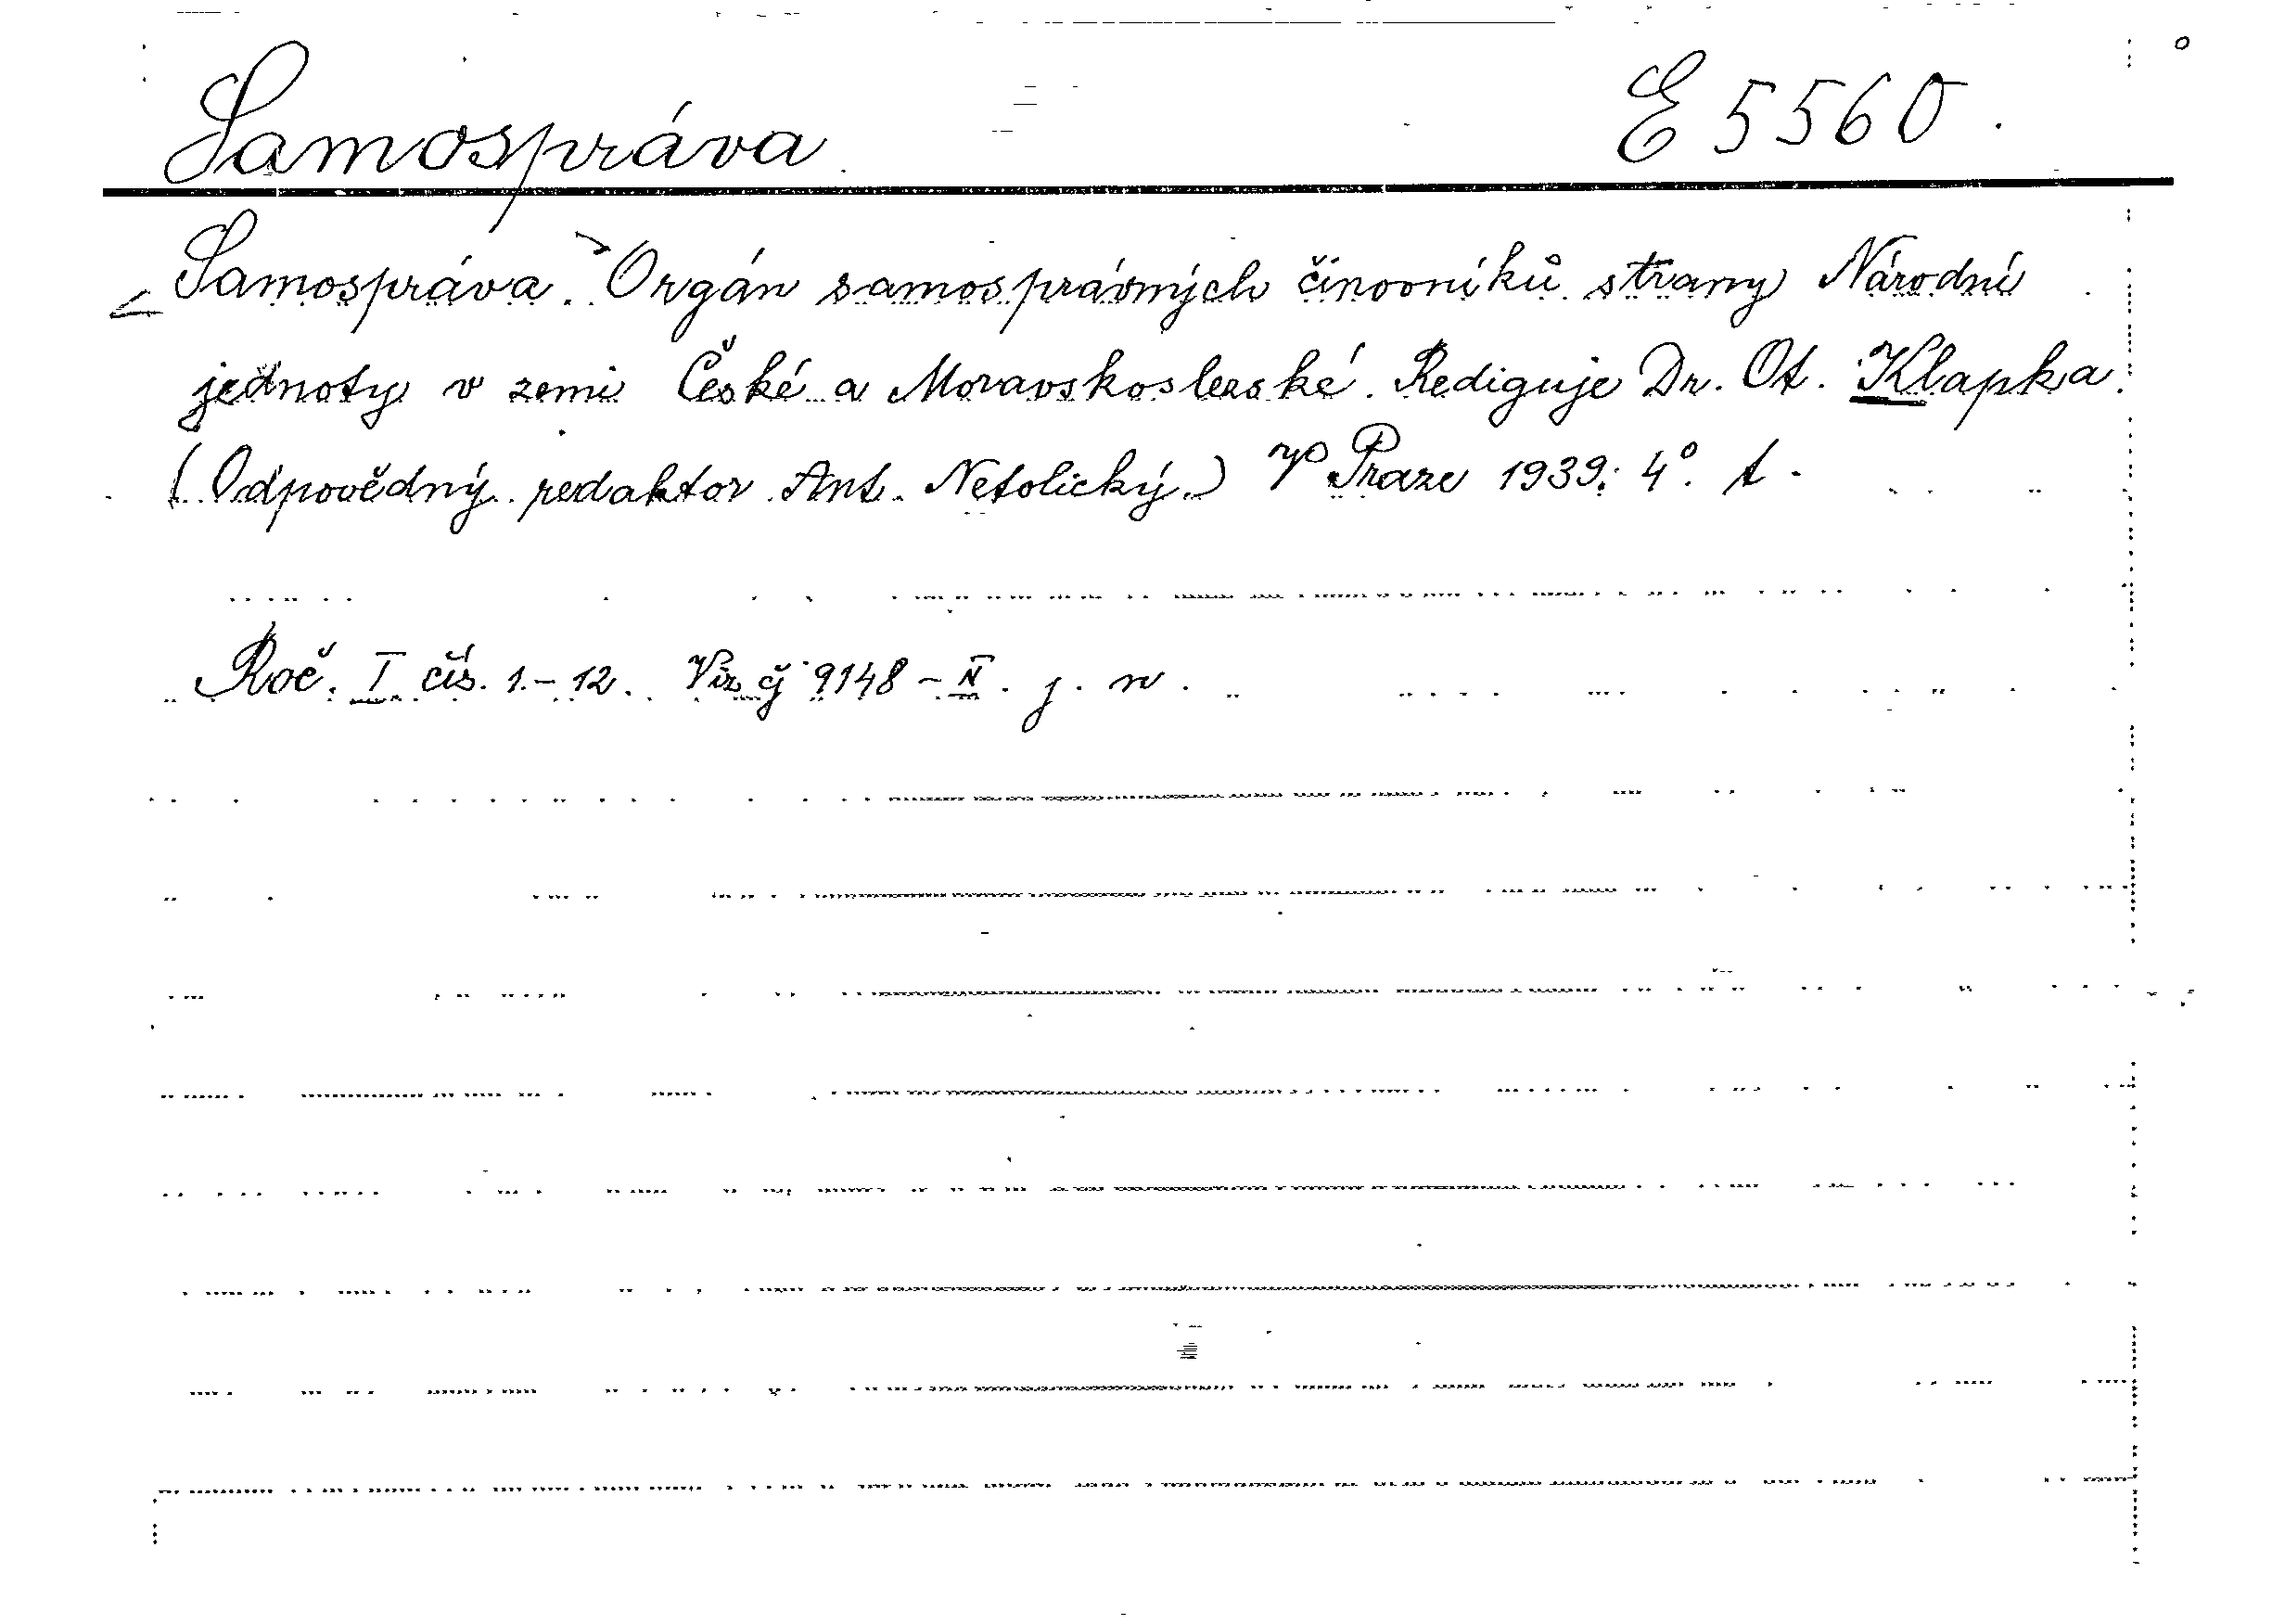 Samospráva. E 5560.
Samospráva. Orgán samosprávných činovníků strany Národní
jednoty v zemi České a Moravskoslezské. Rediguje Dr. Ot. Klapka.
(Odpovědný redaktor Ant. Netolický.) V Praze 1939. 4°. t.
Roč. I čís. 1.-12. Viz čj 9148 - . j. w.